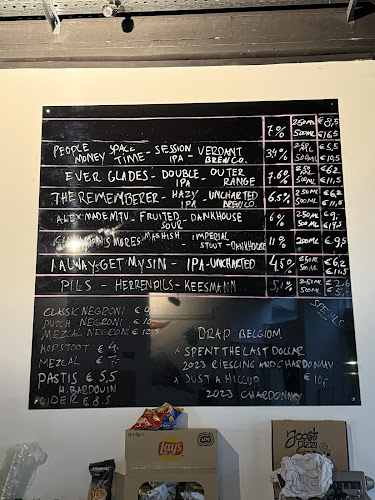 7% 250ML € 8,5
500ML €16,5
PEOPLE SPACE - SESSION - VERDANT 3,4% 250ML € 5,5
MONEY TIME IPA BREW CO. 500ML € 10,5
EVER GLADES - DOUBLE - OUTER 7.6% € 6,2
IPA RANGE 500ML € 11,5
THE REMEMBERER - HAZY - UNCHARTED 6.5% 250ML € 6,2
IPA BREW CO. 500ML € 11,5
ALEX MADE MTV - FRUITED - DANKHOUSE 6% 250ML € 9,-
SOUR 500ML
IMPERIAL 11% 200ML € 9,5
STOUT - DANKHOUSE
I ALWAYS GET MY SIN - IPA - UNCHARTED 4,5% € 6,2
500ML € 11,5
PILS - HERRENPILS - KEESMANN 5,1%
CLASSIC NEGRONI €
DUTCH NEGRONI €
MEZCAL NEGRONI € 12,5
KOPSTOOT € 4,-
MEZCAL € 7,-
PASTIS € 5,5
H. BARDOUIN
CIDER € 8.5
DRAP. BELGIUM
SPENT THE LAST DOLLAR
2023 RIESLING AND CHARDONNAY
JUST A HICCUP € 10,-
2023 CHARDONNAY
Lay's
Lay's
Joost
Pizza